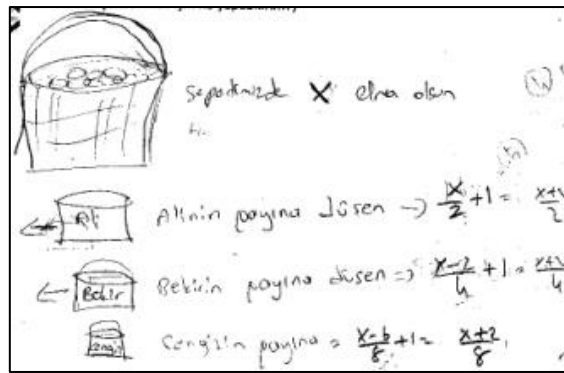 Sepetimizde X elma olsun
Ali Alinin payına düşen → x/2 + 1 = x+2/2
Bekir Bekirin payına düşen ⇒ x-2/4 + 1 = x+2/4
Cengiz Cengizin payına = x-6/8 + 1 = x+2/8